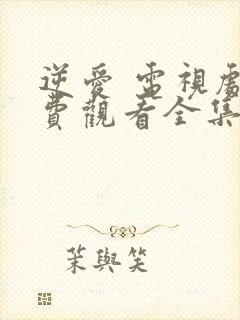 逆愛 電視劇
費觀看全集
茉與笑